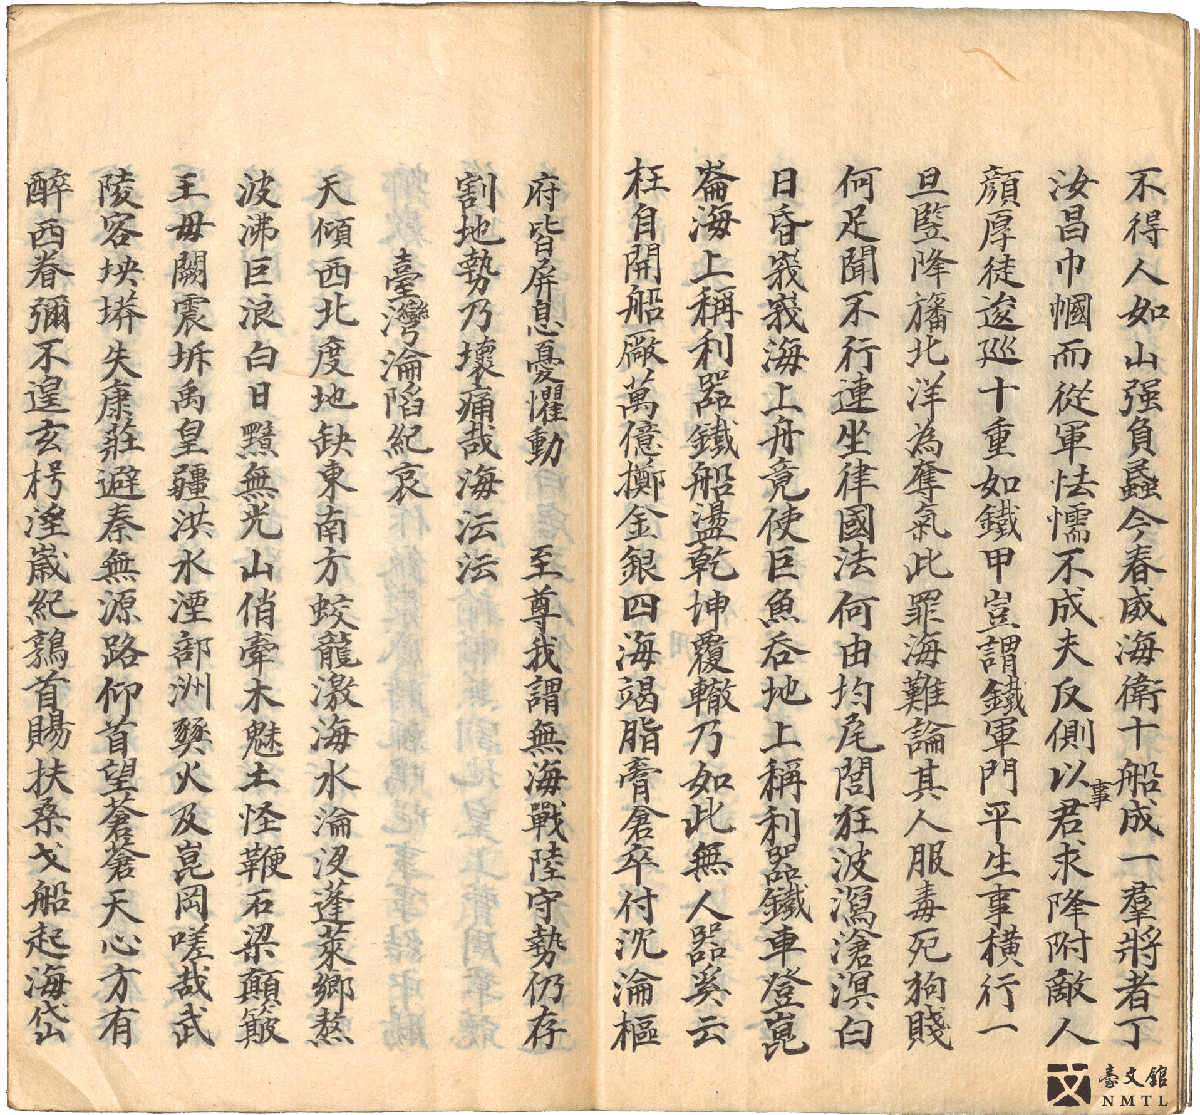 不得人如山强負蟊今春威海衛十船成一羣將者丁
汝昌巾幗而從軍怯懦不成夫反側以事君求降附敵人
顏厚徒逡巡十重如鐵甲豈謂鐵軍門平生事橫行一
旦豎降旛北洋為奪氣此罪海難論其人服毒死狗賤
何足聞不行連坐律國法何由均尾閭狂波瀉滄溟白
日昏峩峩海上舟竟使巨魚吞地上稱利器鐵車登崑
崙海上稱利器鐵船盪乾坤覆轍乃如此無人器奚云
枉自開船廠萬億擲金銀四海竭脂膏倉卒付沉淪樞
府皆屏息憂懼動 至尊我謂無海戰陸守勢仍存
割地勢乃壞痛哉海沄沄
臺灣淪陷紀哀
天傾西北度地缺東南方蛟龍激海水淪沒蓬萊鄉熬
波沸巨浪白日黯無光山俏牽木魅土怪鞭石梁顛簸
王毋闕震坼禹皇疆洪水湮部洲爨火及崑岡嗟哉武
陵客坱塨失康莊避秦無源路仰首望蒼蒼天心方有
醉西眷彌不遑玄枵淫嵗紀鶉首賜扶桑戈船起海岱
臺文館
NMTL